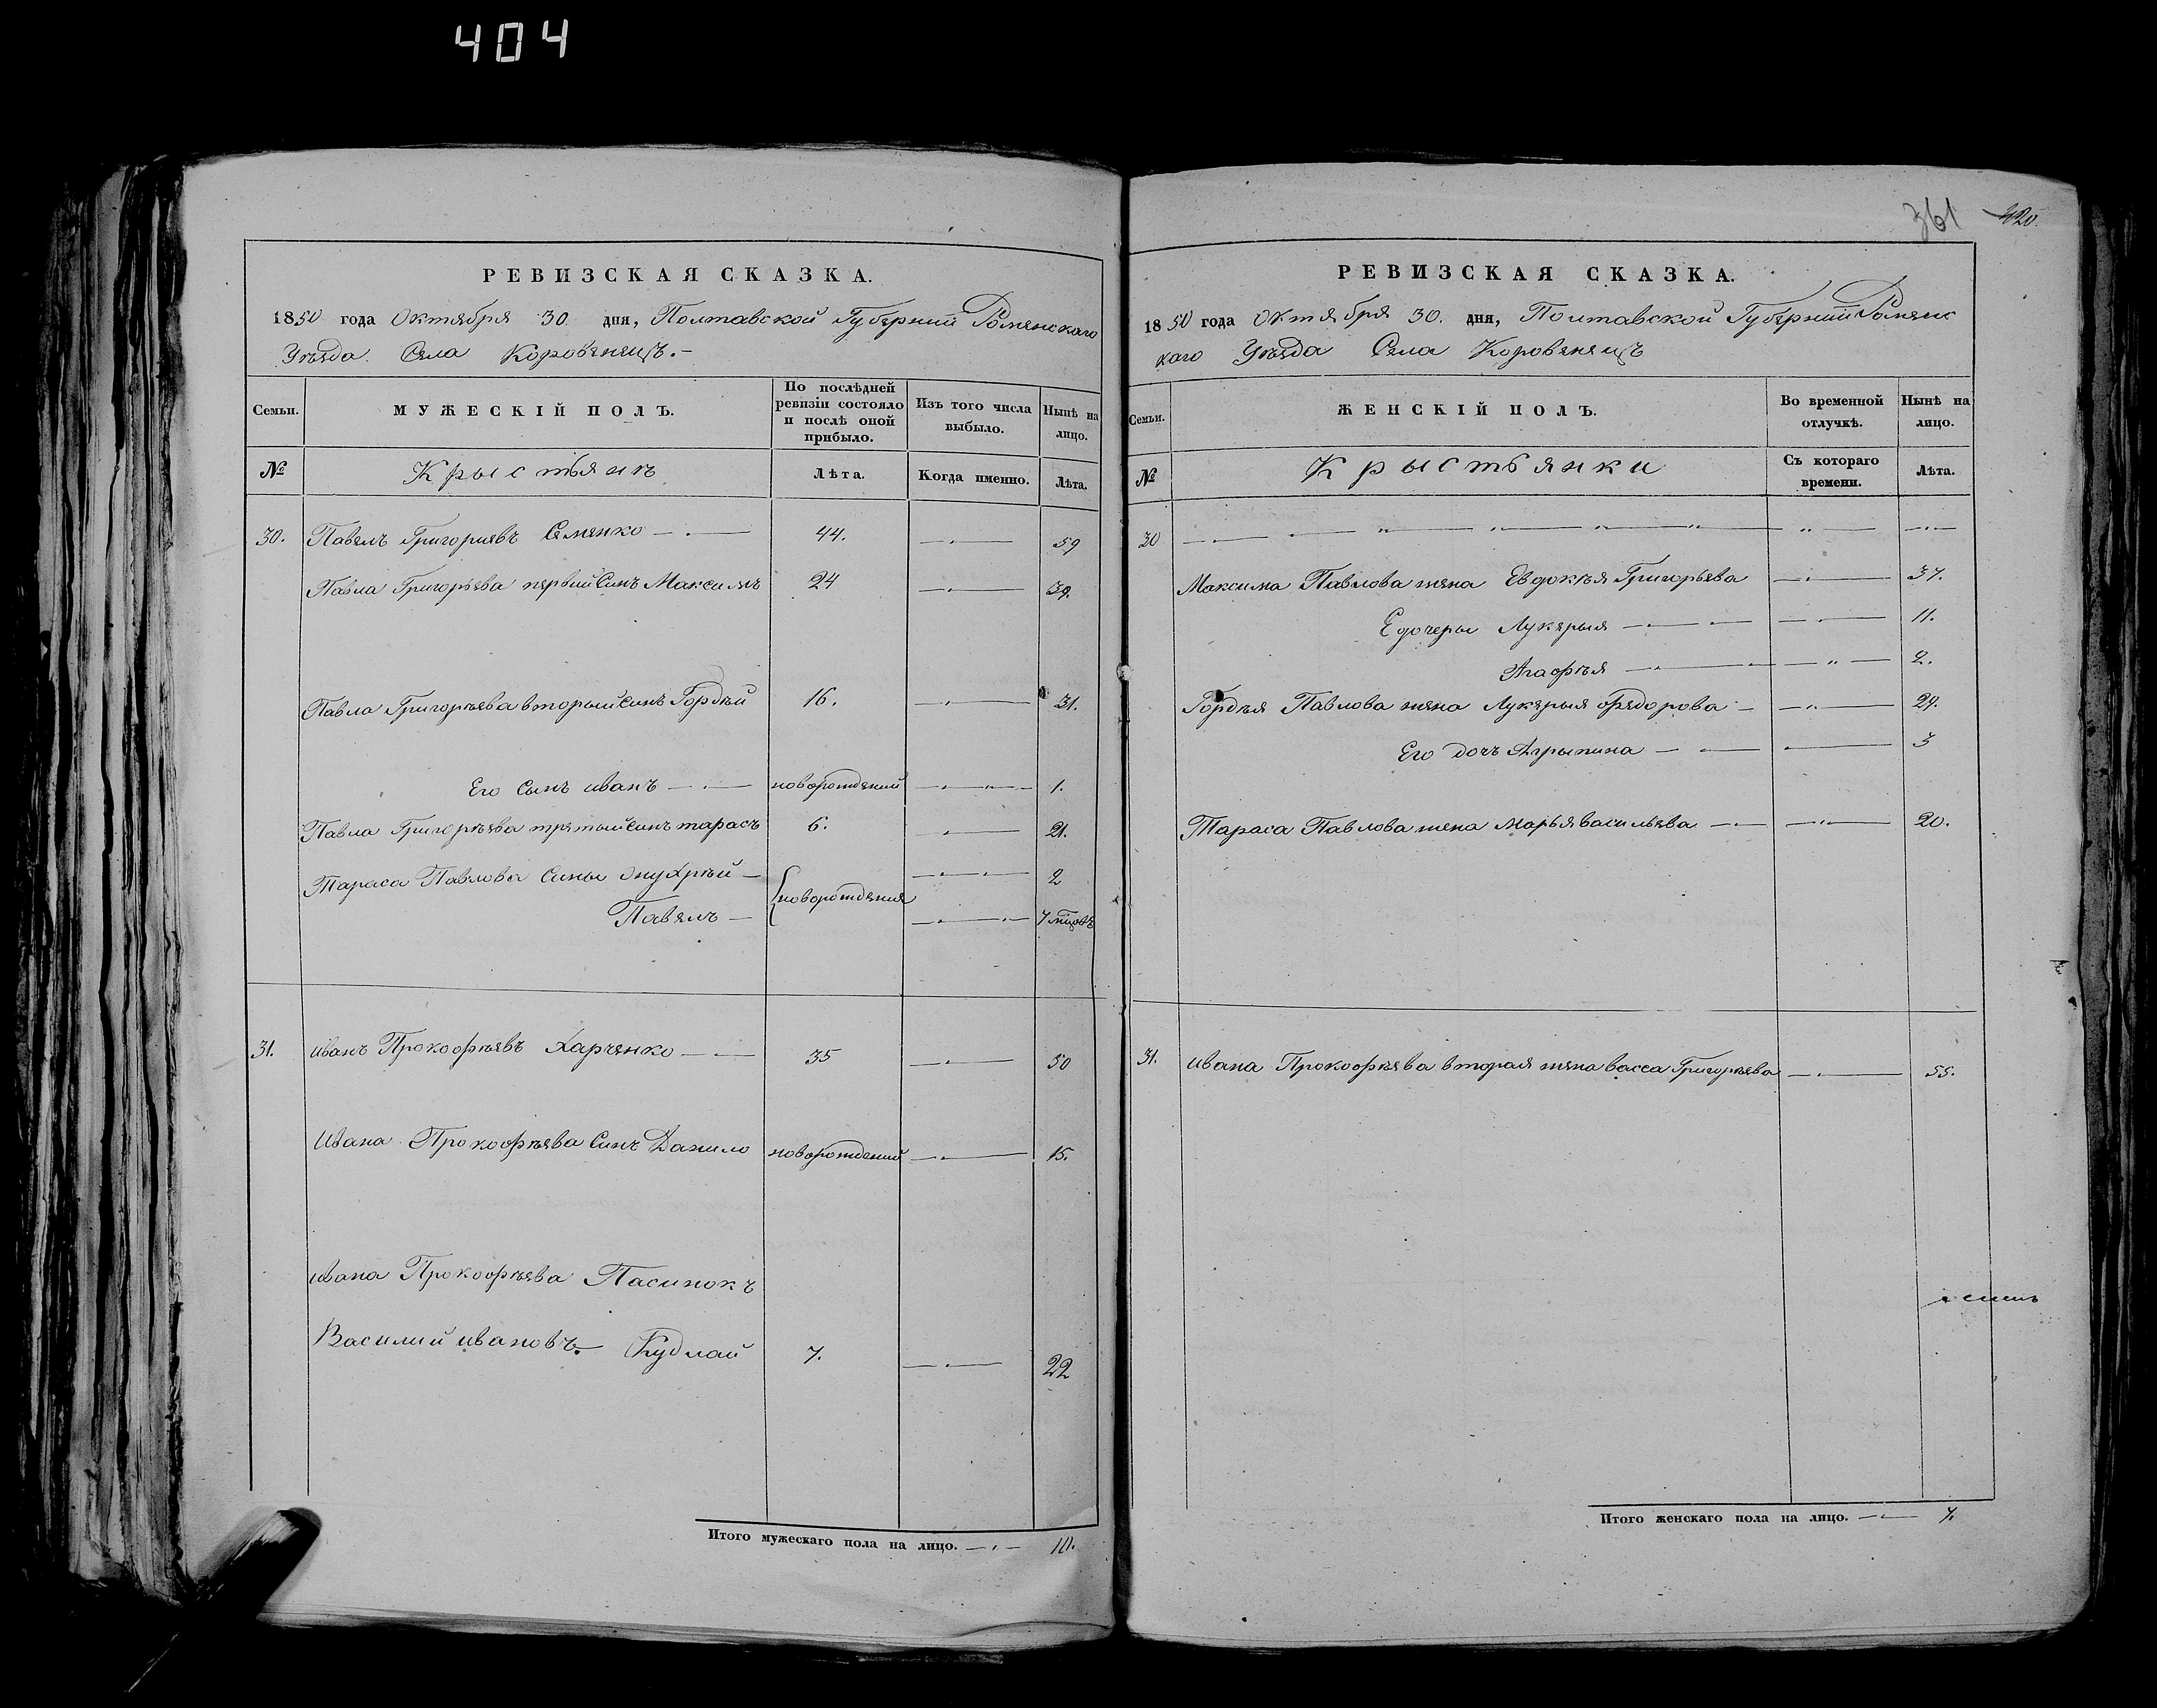 404
РЕВИЗСКАЯ СКАЗКА.
1850 года Октября 30 дня, Полтавской Губернии Роменскаго
Уезда Села Коровенецъ.-
Семьи.
МУЖЕСКІЙ ПОЛЪ.
По послѣдней ревизіи состояло и послѣ оной прибыло.
Изъ того числа выбыло.
Нынѣ на лицо.
№
Крыстьянъ
Лѣта.
Когда именно.
Лѣта.
30. Павелъ Григориевъ Семенко 44. 59
Павла Григорьева первий Синъ Максимъ 24 39.
Павла Григорѣева вторый Синъ Гордѣй 16. 31.
Его Сынъ иванъ новорождений 1.
Павла Григорѣева третый синъ тарасъ 6. 21.
Тараса Павлова Сины Онухрѣй 2
новорождения
Павелъ 7 мцовъ
31. иванъ Прокофѣевъ Харченко 35 50
Ивана Прокофѣева Синъ Данило новорожденый 15.
ивана Прокофѣева Пасинокъ
Василий ивановъ Кудлай 7. 22
Итого мужескаго пола на лицо. 10.
361 420.
РЕВИЗСКАЯ СКАЗКА.
1850 года Октября 30. дня, Полтавской Губернии Роменс
каго Уезда Села Коровенецъ
Семьи.
ЖЕНСКІЙ ПОЛЪ.
Во временной отлучкѣ.
Нынѣ на лицо.
№
Крыстьянки
Съ котораго времени.
Лѣта.
30
Максима Павлова жена Евдокѣя Григорьева 37.
Е дочеры Лукерыя 11.
Агафѣя 2.
Гордѣя Павлова жена Лукерыя Федорова 29.
Его дочъ Агрыпина 3
Тараса Павлова жена Марья васильева 20.
31. ивана Прокофѣева вторая жена васса Григорѣева 55.
Итого женскаго пола на лицо. 7.